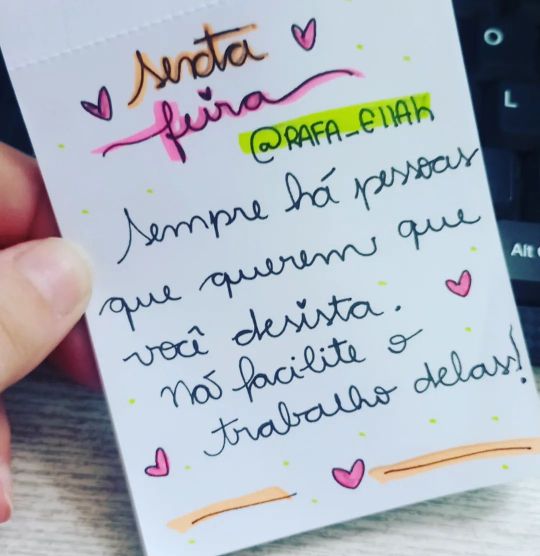 sexta
feira
@RAFA_EllAh
Sempre há pessoas
que querem que
você desista.
Não facilite o
trabalho delas!
O
L
Alt